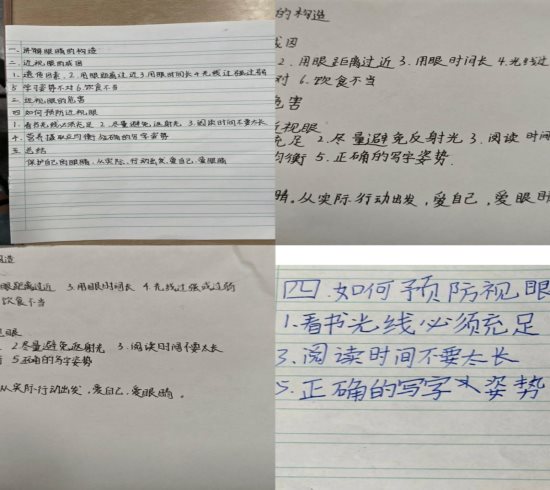 一、讲解眼睛的构造
二、近视眼的成因
1.遗传因素. 2.用眼距离过近 3.用眼时间长 4.光线过强过弱
5.学习姿势不对 6.饮食不当
三、近视眼的危害
四如何预防近视眼
1.看书光线必须充足 2.尽量避免反射光 3.阅读时间不要太长
4.营养摄取应均衡 5.正确的写字姿势
五 总结
保护自己的眼睛,从实际行动出发,爱自己,爱眼睛
的构造
成因
2.用眼距离过近 3.用眼时间长 4.光线过
对 6.饮食不当
危害
近视眼
充足 2.尽量避免反射光 3.阅读时间
均衡 5.正确的写字姿势.
睛。从实际行动出发,爱自己,爱眼
构造
眼距离过近 3.用眼时间长 4.光线过强或过弱
饮食不当
视眼
2.尽量避免反射光 3.阅读时间不要太长
5.正确的写字姿势
从实际行动出发,爱自己,爱眼睛。
四.如何预防视眼
1.看书光线必须充足
3.阅读时间不要太长
5.正确的写字姿势